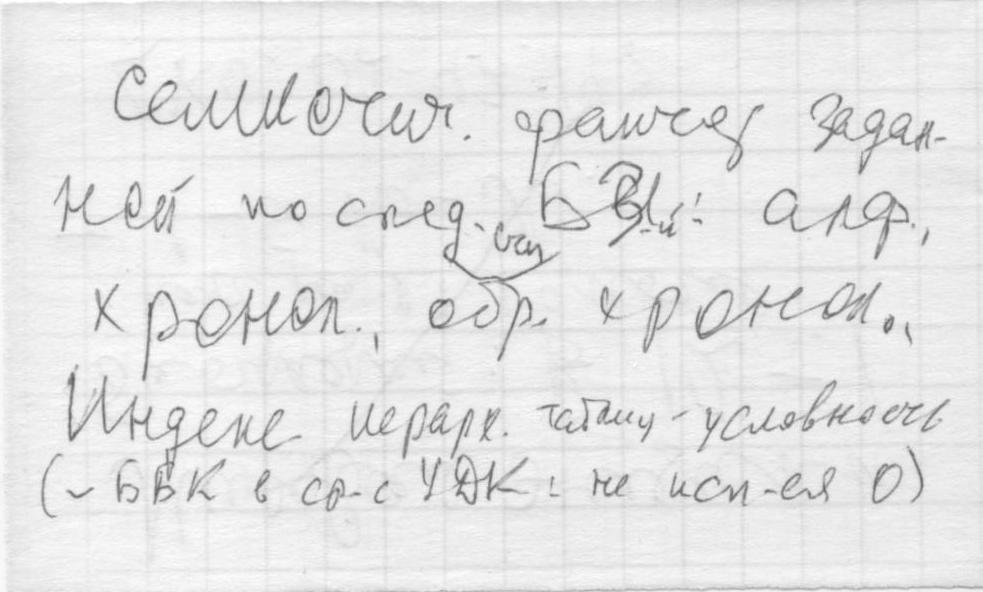 Семиотич. фактор задан-
ной послед-сти БЗ-й: алф.,
хронол., обр. хронол.,
Индекс иерарх. таблиц - условность
(~ ББК в ср. с УДК: не исп-ся 0)